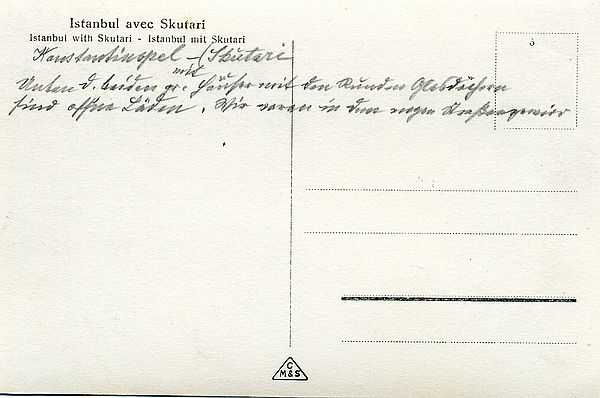 Istanbul avec Skutari
Istanbul with Skutari - Istanbul mit Skutari
Konstantinopel - (Skutari
mit
Unten d. beiden gr. Häuser mit den Runden Glasdächern
sind offne Läden. Wir waren in dem engen Straßengewirr
5
C
M&S